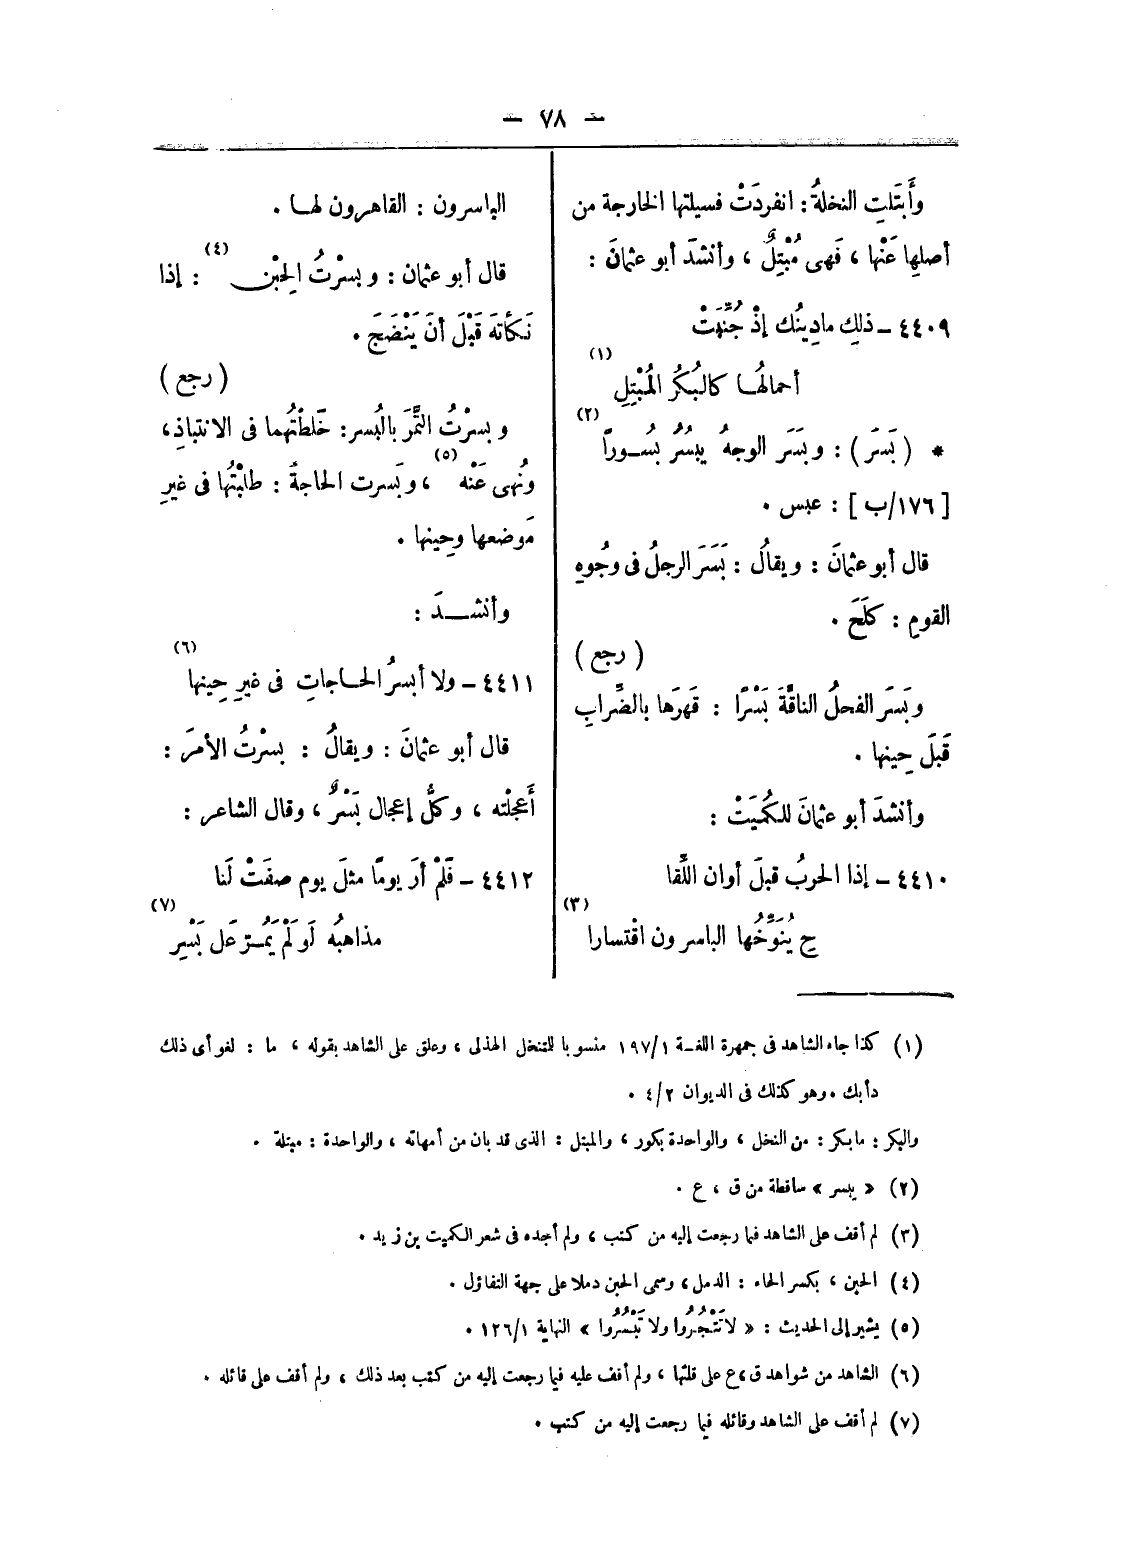 — ٧٨ —
وأَبتَلتِ النخلةُ: انفردَتْ فسيلتها الخارجة من
أصلِها عَنْها ، فَهى مُبْتِلٌ ، وأنشدَ أبو عثمانَ :
٤٤٠٩ – ذلِكِ مادِينُك إذْ جُنِّبَتْ
أحمالهُـا كالبُكُر المُبْتِلِ (١)
* ( بَسَرَ ) : وبَسَر الوجهُ يبْسُرُ بُسُـورًا (٢)
[ ١٧٦/ب ] : عبس .
قال أبو عثمانَ : ويقالُ : بَسَرَ الرجلُ فى وجُوهِ
القومِ : كلَحَ .
( رجع )
وبَسَر الفحلُ الناقَةَ بَسْرًا : قهَرَها بالضِّرابِ
قَبلَ حِينها .
وأنشدَ أبو عثمانَ للكُميَتْ :
٤٤١٠ – إذا الحربُ قبلَ أوان اللِّقا
حِ يُنوِّخُها الباسرون اقْتسارا (٣)
الباسرون : القاهرون لهـا .
قال أبو عثمان : وبسرْتُ الحِبْن (٤) : إذا
نَكأتهَ قَبْلَ أنَ يَنْضَجَ .
( رجع )
وبسرْتُ التَّمَر بالبُسر: خَلطْتُهما فى الانتباذِ،
ونُهى عَنْه (٥) ، وبَسرت الحاجةَ : طلبْتُها فى غيرِ
مَوضعها وحِينها .
وأنشـــدَ :
٤٤١١ – ولا أبسرُ الحـاجاتِ فى غيرِ حِينها (٦)
قال أبو عثمانَ : ويقالُ : بسرْتُ الأمرَ :
أَعجلْته ، وكلُّ إعجال بَسْرٌ ، وقال الشاعر :
٤٤١٢ – فَلمْ أرَ يومًا مثلَ يوم صفَتْ لَنا
مذاهبُه لَو لَمْ يَمُـتر عَل بَسْرِ (٧)
(١) كذا جاء الشاهد فى جمهرة اللغـة ١٩٧/١ منسوبا للمتنخل الهذلى ، وعلق على الشاهد بقوله ، ما : لغو أى ذلك
دأبك . وهو كذلك فى الديوان ٤/٢ .
والبكر : مابكر : من النخل ، والواحدة بكور ، والمبتل : الذى قد بان من أمهاته ، والواحدة : مبتلة .
(٢) « يبسر » ساقطة من ق ، ع .
(٣) لم أقف على الشاهد فيما رجعت إليه من كتب ، ولم أجده فى شعر الكميت بن زيد .
(٤) الحبن ، بكسر الحاء : الدمل ، وسمى الحبن دملا على جهة التفاؤل .
(٥) يشير إلى الحديث : « لا تَثْجُرُوا ولا تَبْسُرُوا » النهاية ١٢٦/١ .
(٦) الشاهد من شواهد ق ،ع على قلتها ، ولم أقف عليه فيما رجعت إليه من كتب بعد ذلك ، ولم أقف على قائله .
(٧) لم أقف على الشاهد وقائله فيما رجعت إليه من كتب .